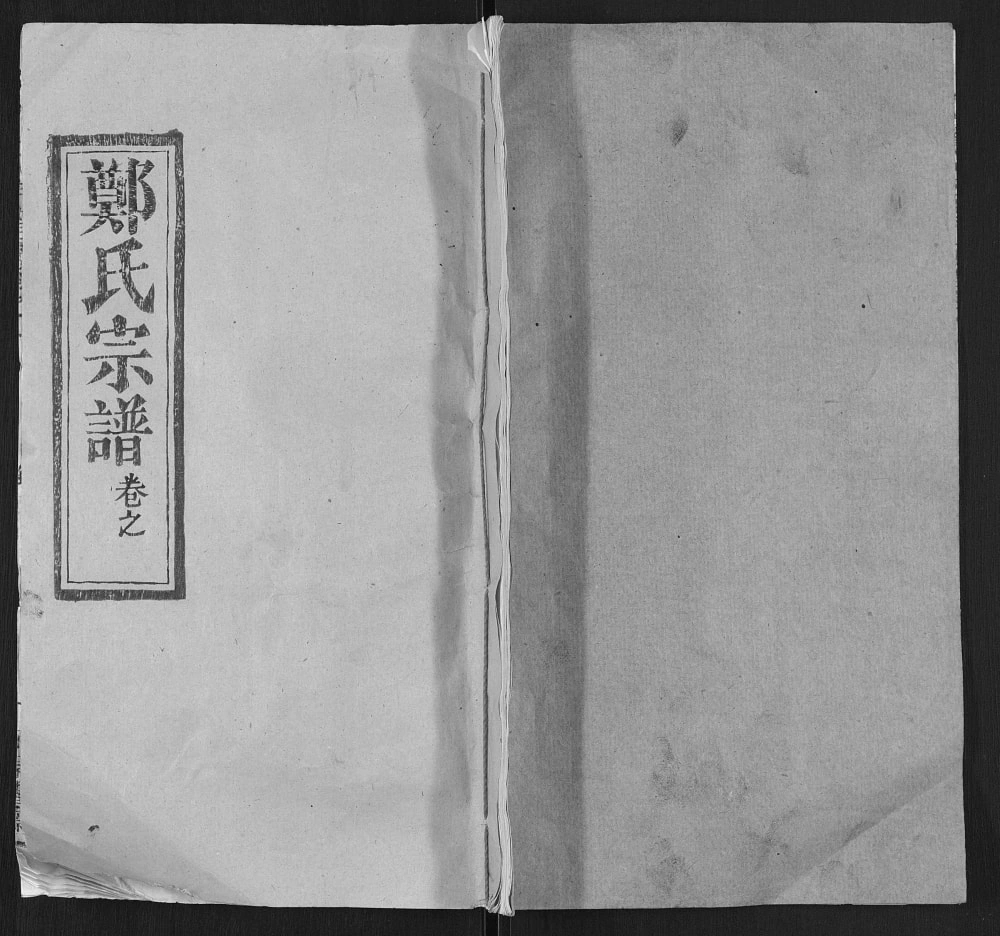 鄭氏宗譜卷之